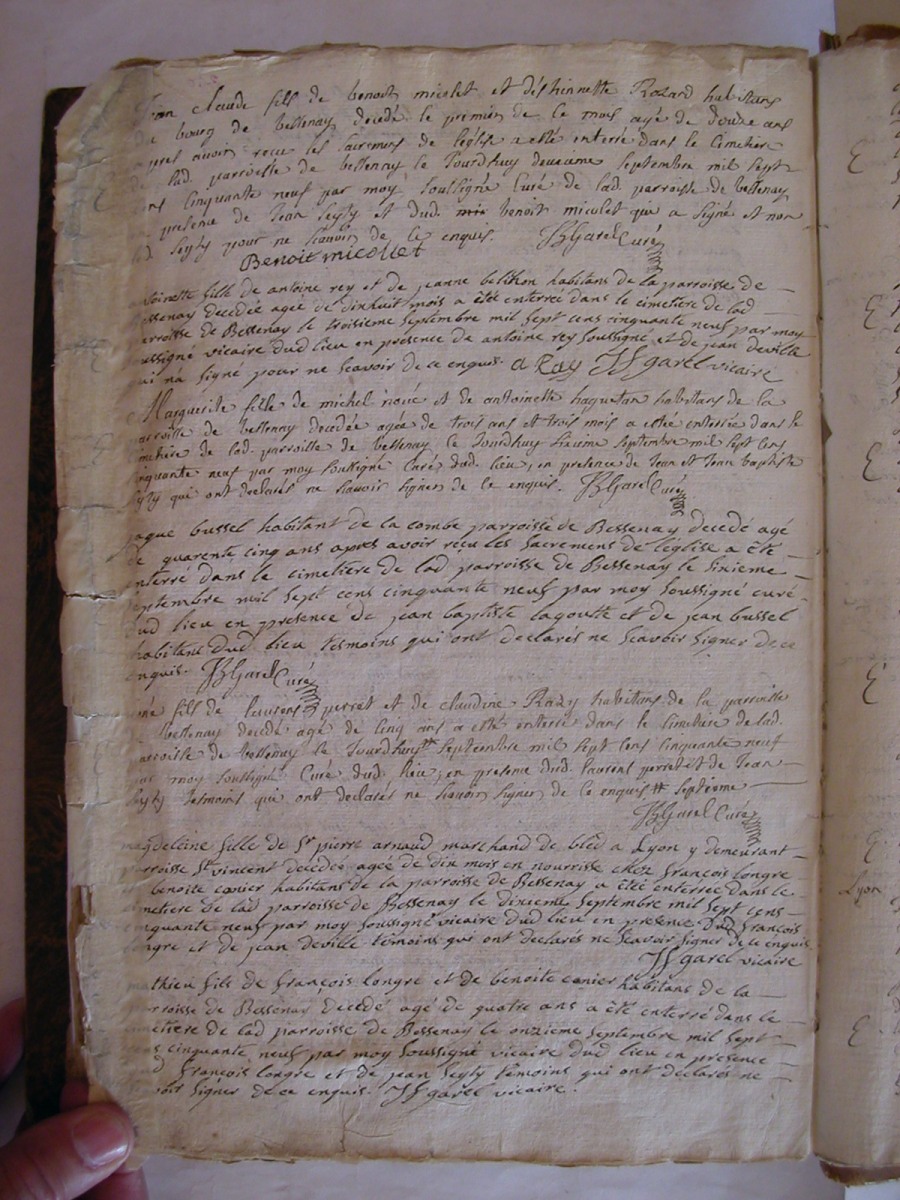 Jean claude fils de benoit micolet et d'éthiennette Rozard habitans
du bourg de bessenay decedé le premier de ce mois agé de douze ans
apres avoir receu les sacremens de l'église a etté enterré dans le cimetière
de lad. parroisse de bessenay ce jourdhuy deuxieme septembre mil sept
cens cinquante neuf par moy soussigné curé de lad. parroisse de bessenay
en presence de Jean seyty et dud. benoit micolet qui a signé et non
led seyty pour ne scavoir de ce enquis. JBGarel Curé
Benoit micollet
antoinette fille de antoine rey et de jeanne belthon habitans de la parroisse de
Bessenay decedée agée de dixhuit mois a été enterrée dans le cimetiere de lad
parroisse de Bessenay le troisième septembre mil sept cens cinquante neuf par moy
soussigné vicaire dud lieu en presence de antoine rey soussigné et de jean deville
qui n'a signé pour ne scavoir de ce enquis. a Ray JF garel vicaire
Marguerite fille de michel et de antoinette haguetan habitans de la
parroisse de bessenay decedée agée de trois ans et trois mois a ettée enterrée dans le
cimetiere de lad. parroisse de bessenay ce jourdhuy sixieme septembre mil sept cens
cinquante neuf par moy soussigné curé dud. lieu, en presence de Jean et Jean baptiste
seyty qui ont declarés ne scavoir signer de ce enquis. JBGarel Curé
jaque bussel habitant de la combe parroisse de Bessenay decedé agé
de quarente cinq ans apres avoir reçu les sacremens de l'église a été
enterré dans le cimetiere de lad parroisse de Bessenay le sixieme
septembre mil sept cens cinquante neuf par moy soussigné curé
dud lieu en presence de jean baptiste lagoutte et de jean bussel
habitans dud lieu temoins qui ont declarés ne scavoir signer de ce
enquis. JBGarel Curé
fils de laurens perret et de claudine Razy habitans de la parroisse
de bessenay decedé agé de cinq ans a etté enterré dans le cimetiere de lad.
parroisse de bessenay ce jourdhuy # septembre mil sept cens cinquante neuf
par moy soussigné Curé dud. lieu, en presence dud. laurens perret et de Jean
seyty temoins qui ont declarés ne scavoir signer de ce enquis # septieme
JBGarel Curé
magdeleine fille de Sr pierre arnaud marchand de bled a Lyon y demeurant
parroisse St vincent decedée agée de dix mois en nourrisse chez François longre
et benoite canier habitans de la parroisse de Bessenay a été enterrée dans le
cimetiere de lad parroisse de Bessenay le dixieme septembre mil sept cens
cinquante neuf par moy soussigné vicaire dud lieu en presence dud François
longre et de jean deville temoins qui ont declarés ne scavoir signer de ce enquis
JF garel vicaire
mathieu fils de François longre et de benoite canier habitans de la
parroisse de Bessenay decedé agé de quatre ans a été enterré dans le
cimetiere de lad parroisse de Bessenay le onzieme septembre mil sept
cens cinquante neuf par moy soussigné vicaire dud lieu en presence
dud François longre et de jean seyty temoins qui ont declarés ne
scavoir signer de ce enquis. JF garel vicaire.
Lyon